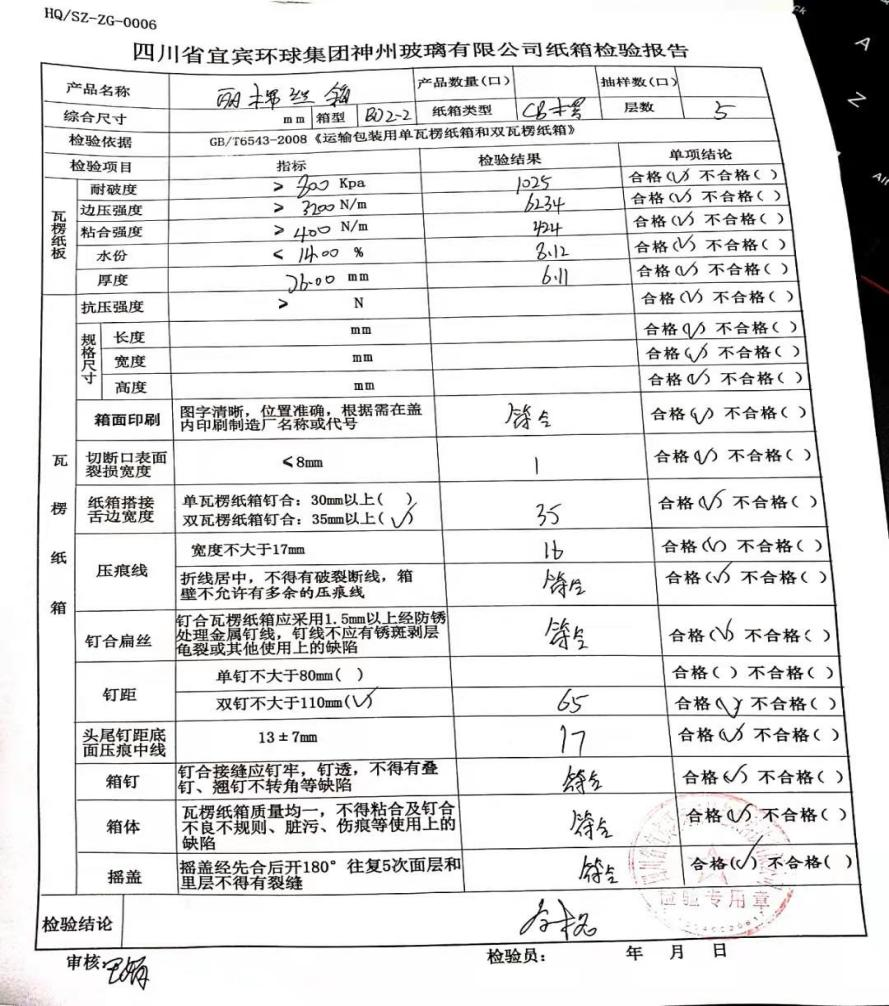 HQ/SZ-ZG-0006
四川省宜宾环球集团神州玻璃有限公司纸箱检验报告
产品名称 产品数量(口) 抽样数(口)
综合尺寸 mm 箱型 BD2-2 纸箱类型 CB楞 层数 5
检验依据 GB/T6543-2008《运输包装用单瓦楞纸箱和双瓦楞纸箱》
检验项目 指标 检验结果 单项结论
瓦楞纸板
耐破度 > 800 Kpa 1025 合格(√) 不合格( )
边压强度 > 3200 N/m 6234 合格(√) 不合格( )
粘合强度 > 400 N/m 424 合格(√) 不合格( )
水份 < 14.00 % 8.12 合格(√) 不合格( )
厚度 mm 6.11 合格(√) 不合格( )
瓦楞纸箱
抗压强度 > N 合格(√) 不合格( )
规格尺寸
长度 mm 合格(√) 不合格( )
宽度 mm 合格(√) 不合格( )
高度 mm 合格(√) 不合格( )
箱面印刷 图字清晰，位置准确，根据需在盖
内印刷制造厂名称或代号 符合 合格(√) 不合格( )
切断口表面
裂损宽度 ≤8mm 1 合格(√) 不合格( )
纸箱搭接
舌边宽度 单瓦楞纸箱钉合：30mm以上( )
双瓦楞纸箱钉合：35mm以上(√) 35 合格(√) 不合格( )
压痕线 宽度不大于17mm 16 合格(√) 不合格( )
折线居中，不得有破裂断线，箱
壁不允许有多余的压痕线 符合 合格(√) 不合格( )
钉合扁丝 钉合瓦楞纸箱应采用1.5mm以上经防锈
处理金属钉线，钉线不应有锈斑剥层
龟裂或其他使用上的缺陷 符合 合格(√) 不合格( )
钉距 单钉不大于80mm( ) 合格( ) 不合格( )
双钉不大于110mm(√) 65 合格(√) 不合格( )
头尾钉距底
面压痕中线 13±7mm 17 合格(√) 不合格( )
箱钉 钉合接缝应钉牢，钉透，不得有叠
钉、翘钉不转角等缺陷 符合 合格(√) 不合格( )
箱体 瓦楞纸箱质量均一，不得粘合及钉合
不良不规则、脏污、伤痕等使用上的
缺陷 符合 合格(√) 不合格( )
摇盖 摇盖经先合后开180°往复5次面层和
里层不得有裂缝 符合 合格(√) 不合格( )
检验专用章
检验结论 合格
审核: 检验员: 年 月 日